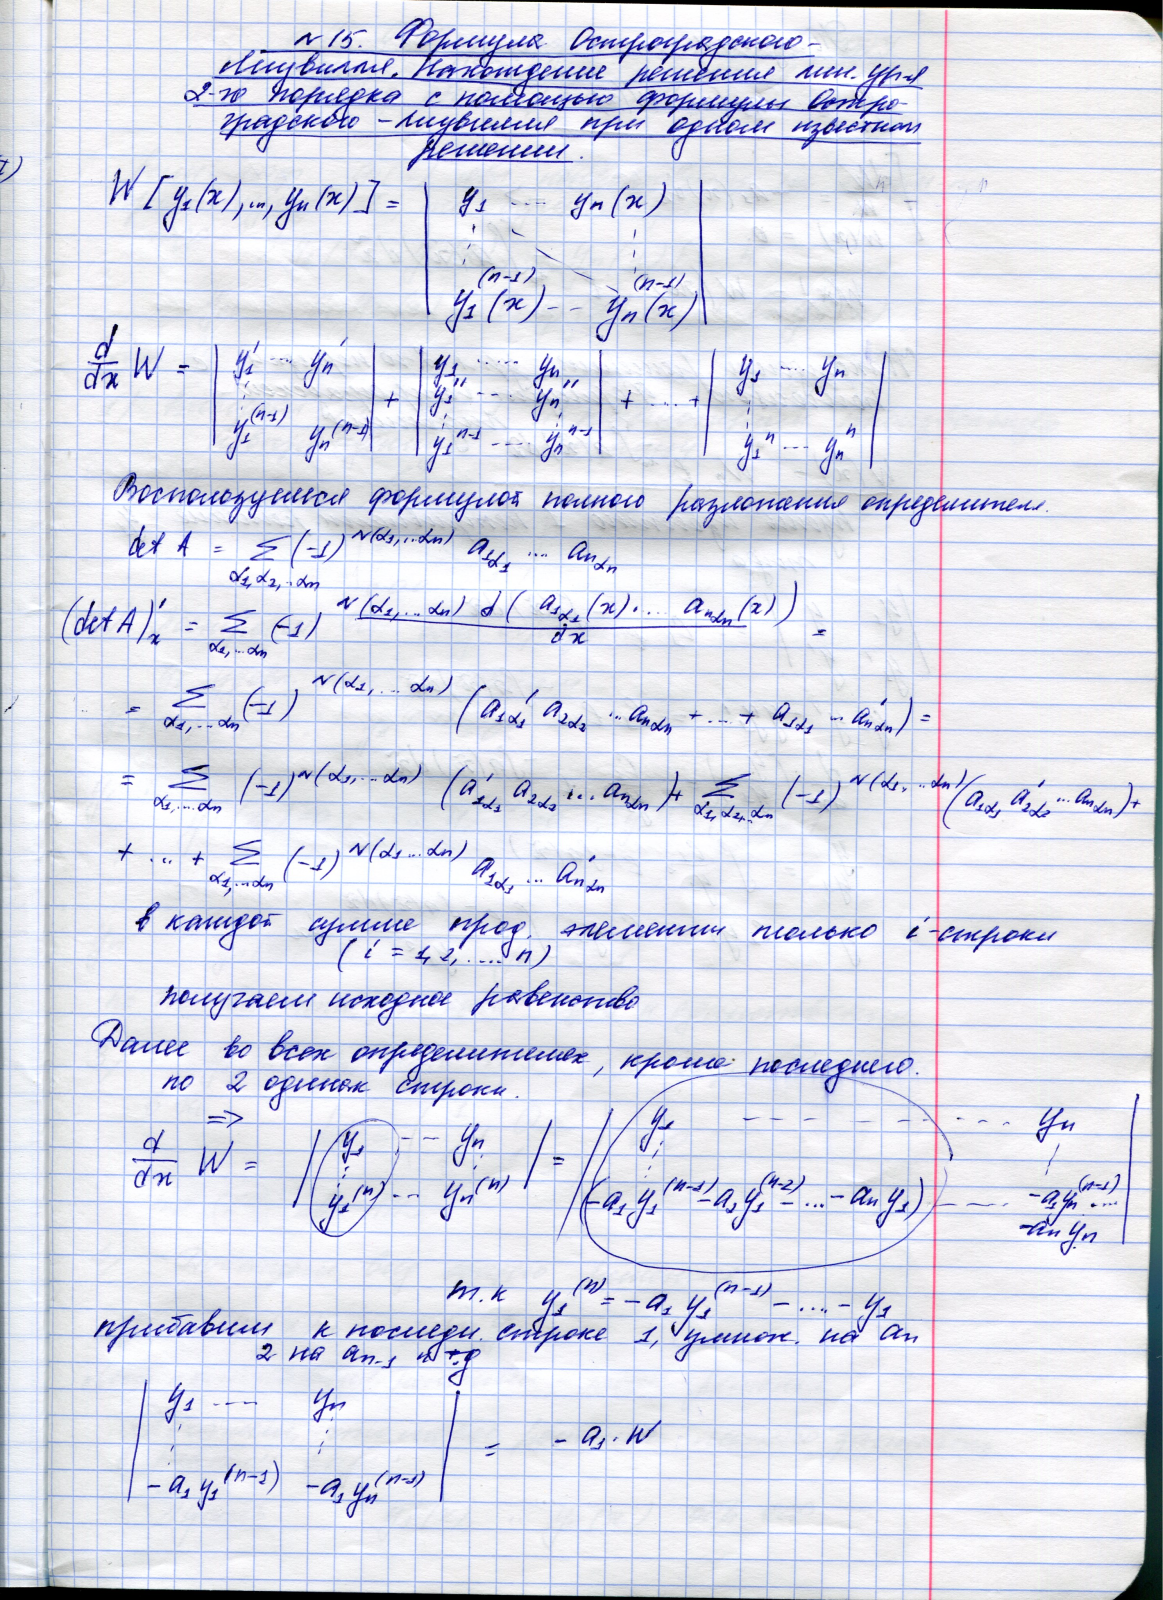 N 15. Формула Остроградского-
Лиувилля. Нахождение решения лин. ур-я
2-го порядка с помощью формулы Остро-
градского-Лиувилля при одном известном
решении.
W [y₁(x),..., yₙ(x)] = | y₁ ... yₙ(x) |
| y₁⁽ⁿ⁻¹⁾(x) ... yₙ⁽ⁿ⁻¹⁾(x) |
d/dx W = | y₁' ... yₙ' | + | y₁ ... yₙ | + ... + | y₁ ... yₙ |
| y₁'' ... yₙ'' |
| y₁⁽ⁿ⁻¹⁾ yₙ⁽ⁿ⁻¹⁾ | | y₁ⁿ⁻¹ ... yₙⁿ⁻¹ | | y₁ⁿ ... yₙⁿ |
Воспользуемся формулой полного разложения определителя.
det A = Σ_{α₁,α₂,..αₙ} (-1)^{N(α₁,...αₙ)} a_{1α₁} ... a_{nαₙ}
(det A)'ₓ = Σ_{α₁,...αₙ} (-1)^{N(α₁,...αₙ)} d(a_{1α₁}(x)·... a_{nαₙ}(x))/dx =
= Σ_{α₁,...αₙ} (-1)^{N(α₁,...αₙ)} (a'_{1α₁} a_{2α₂} ... a_{nαₙ} + ... + a_{1α₁} ... a'_{nαₙ}) =
= Σ_{α₁,...αₙ} (-1)^{N(α₁,...αₙ)} (a'_{1α₁} a_{2α₂} ... a_{nαₙ}) + Σ_{α₁,α₂,..αₙ} (-1)^{N(α₁,...αₙ)} (a_{1α₁} a'_{2α₂} ... a_{nαₙ}) +
+ ... + Σ_{α₁,...αₙ} (-1)^{N(α₁...αₙ)} a_{1α₁} ... a'_{nαₙ}
в каждой сумме прод. элементы только i-строки
(i = 1, 2, .... n)
получаем исходное равенство
Далее во всех определителях, кроме последнего.
по 2 одинак строки.
⇒
d/dx W = | y₁ ... yₙ | = | y₁ ... yₙ |
| y₁⁽ⁿ⁾ ... yₙ⁽ⁿ⁾ | | (-a₁y₁⁽ⁿ⁻¹⁾ - a₂y₁⁽ⁿ⁻²⁾ - ... - aₙy₁) ... -a₁yₙ⁽ⁿ⁻¹⁾ ... |
-aₙyₙ
т.к y₁⁽ⁿ⁾ = -a₁ y₁⁽ⁿ⁻¹⁾ - .... - y₁
прибавим к последн. строке 1, умнож. на aₙ
2 на aₙ₋₁ и т.д
| y₁ .... yₙ |
| -a₁y₁⁽ⁿ⁻¹⁾ -a₁yₙ⁽ⁿ⁻¹⁾ | = -a₁·W